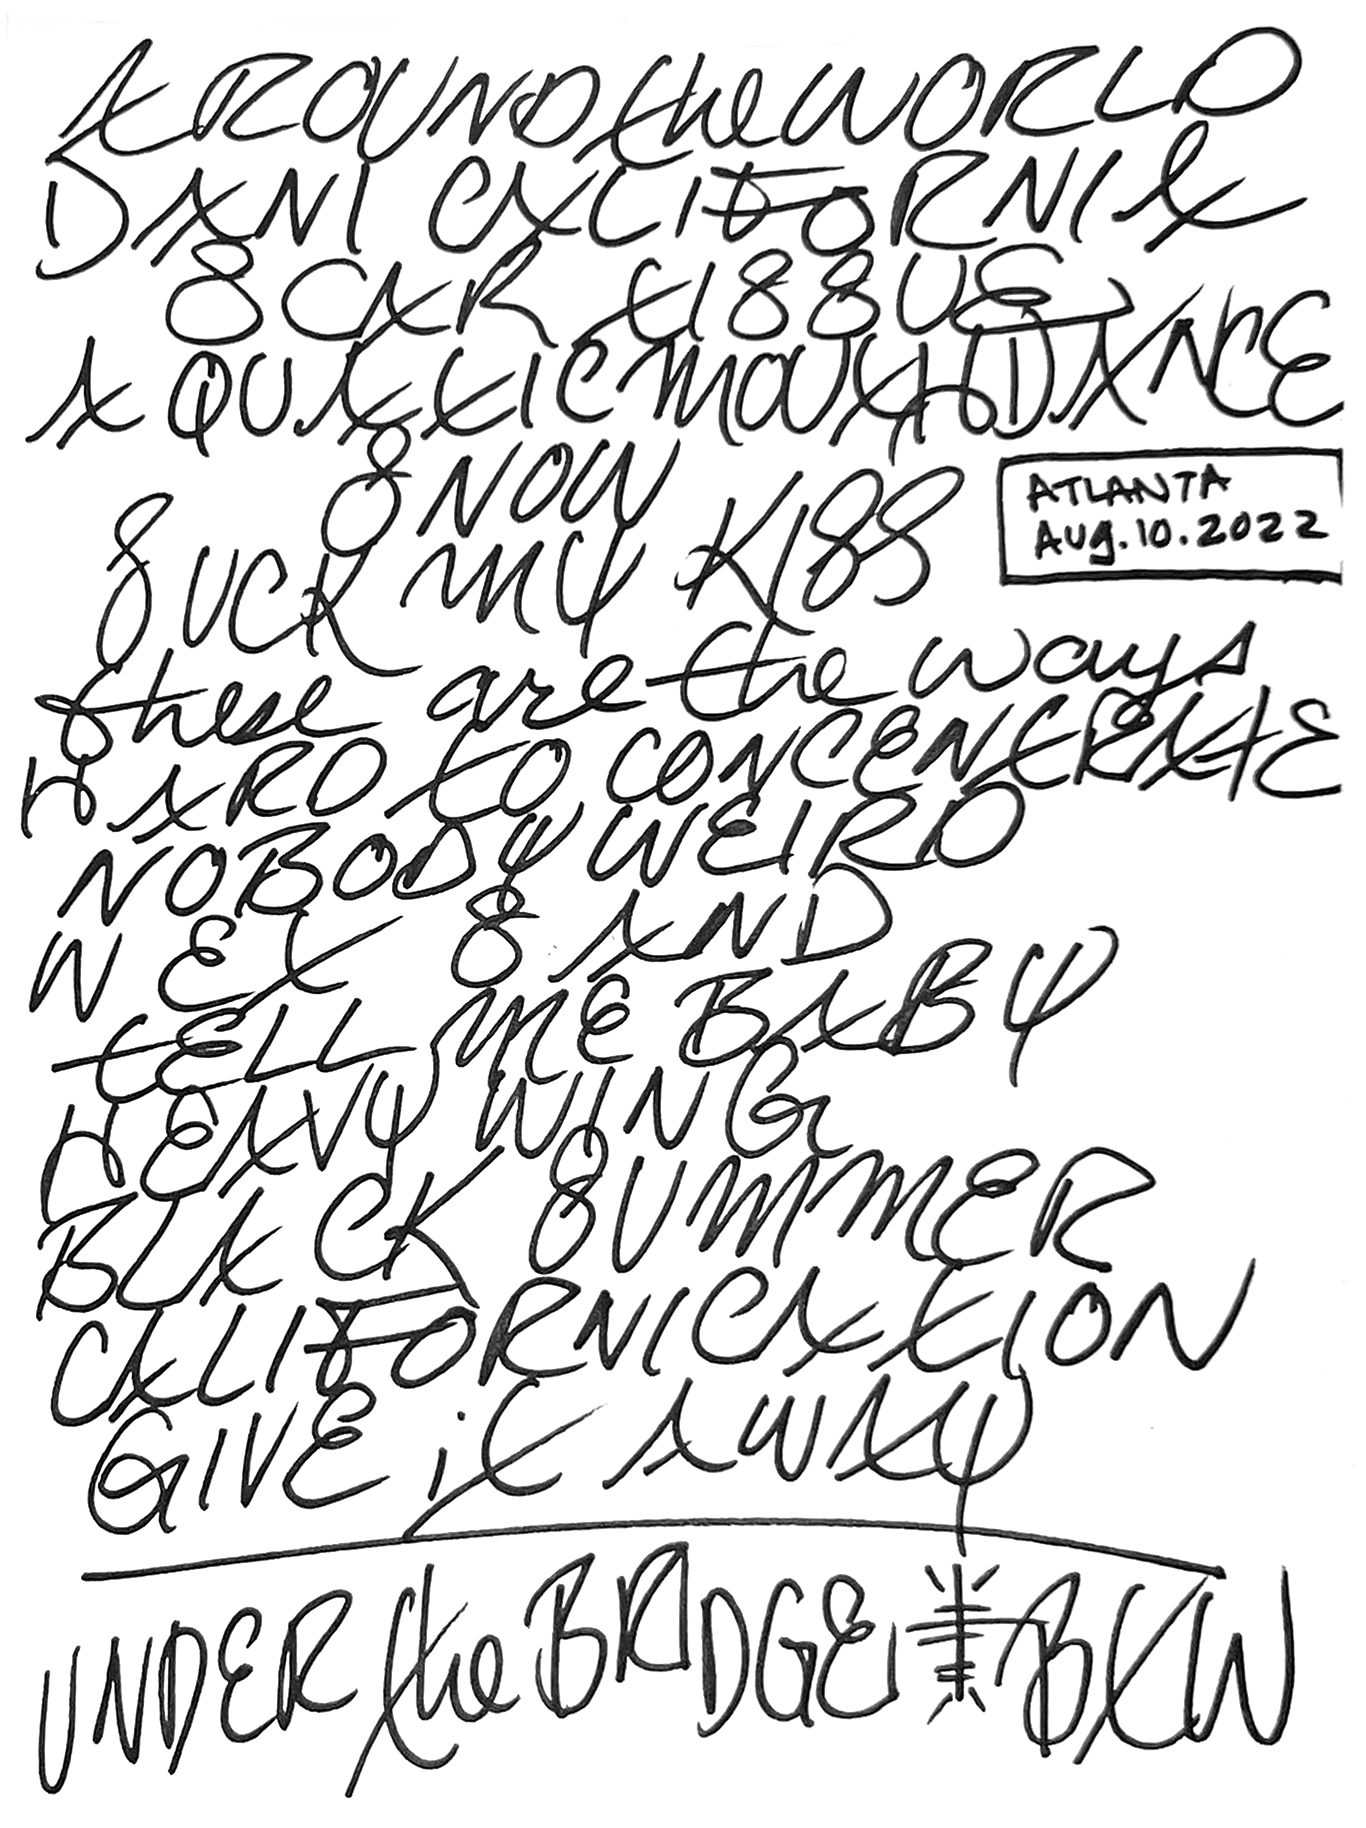 AROUND the WORLD
DANI CALIFORNIA
SCAR TISSUE
AQUATIC MOUTH DANCE
SNOW
SUCK MY KISS
ATLANTA
Aug.10.2022
these are the ways
HARD TO CONCENTRATE
NOBODY WEIRD
WET SAND
TELL ME BABY
HEAVY WING
BLACK SUMMER
CALIFORNICATION
GIVE it AWAY
UNDER the BRIDGE BTW